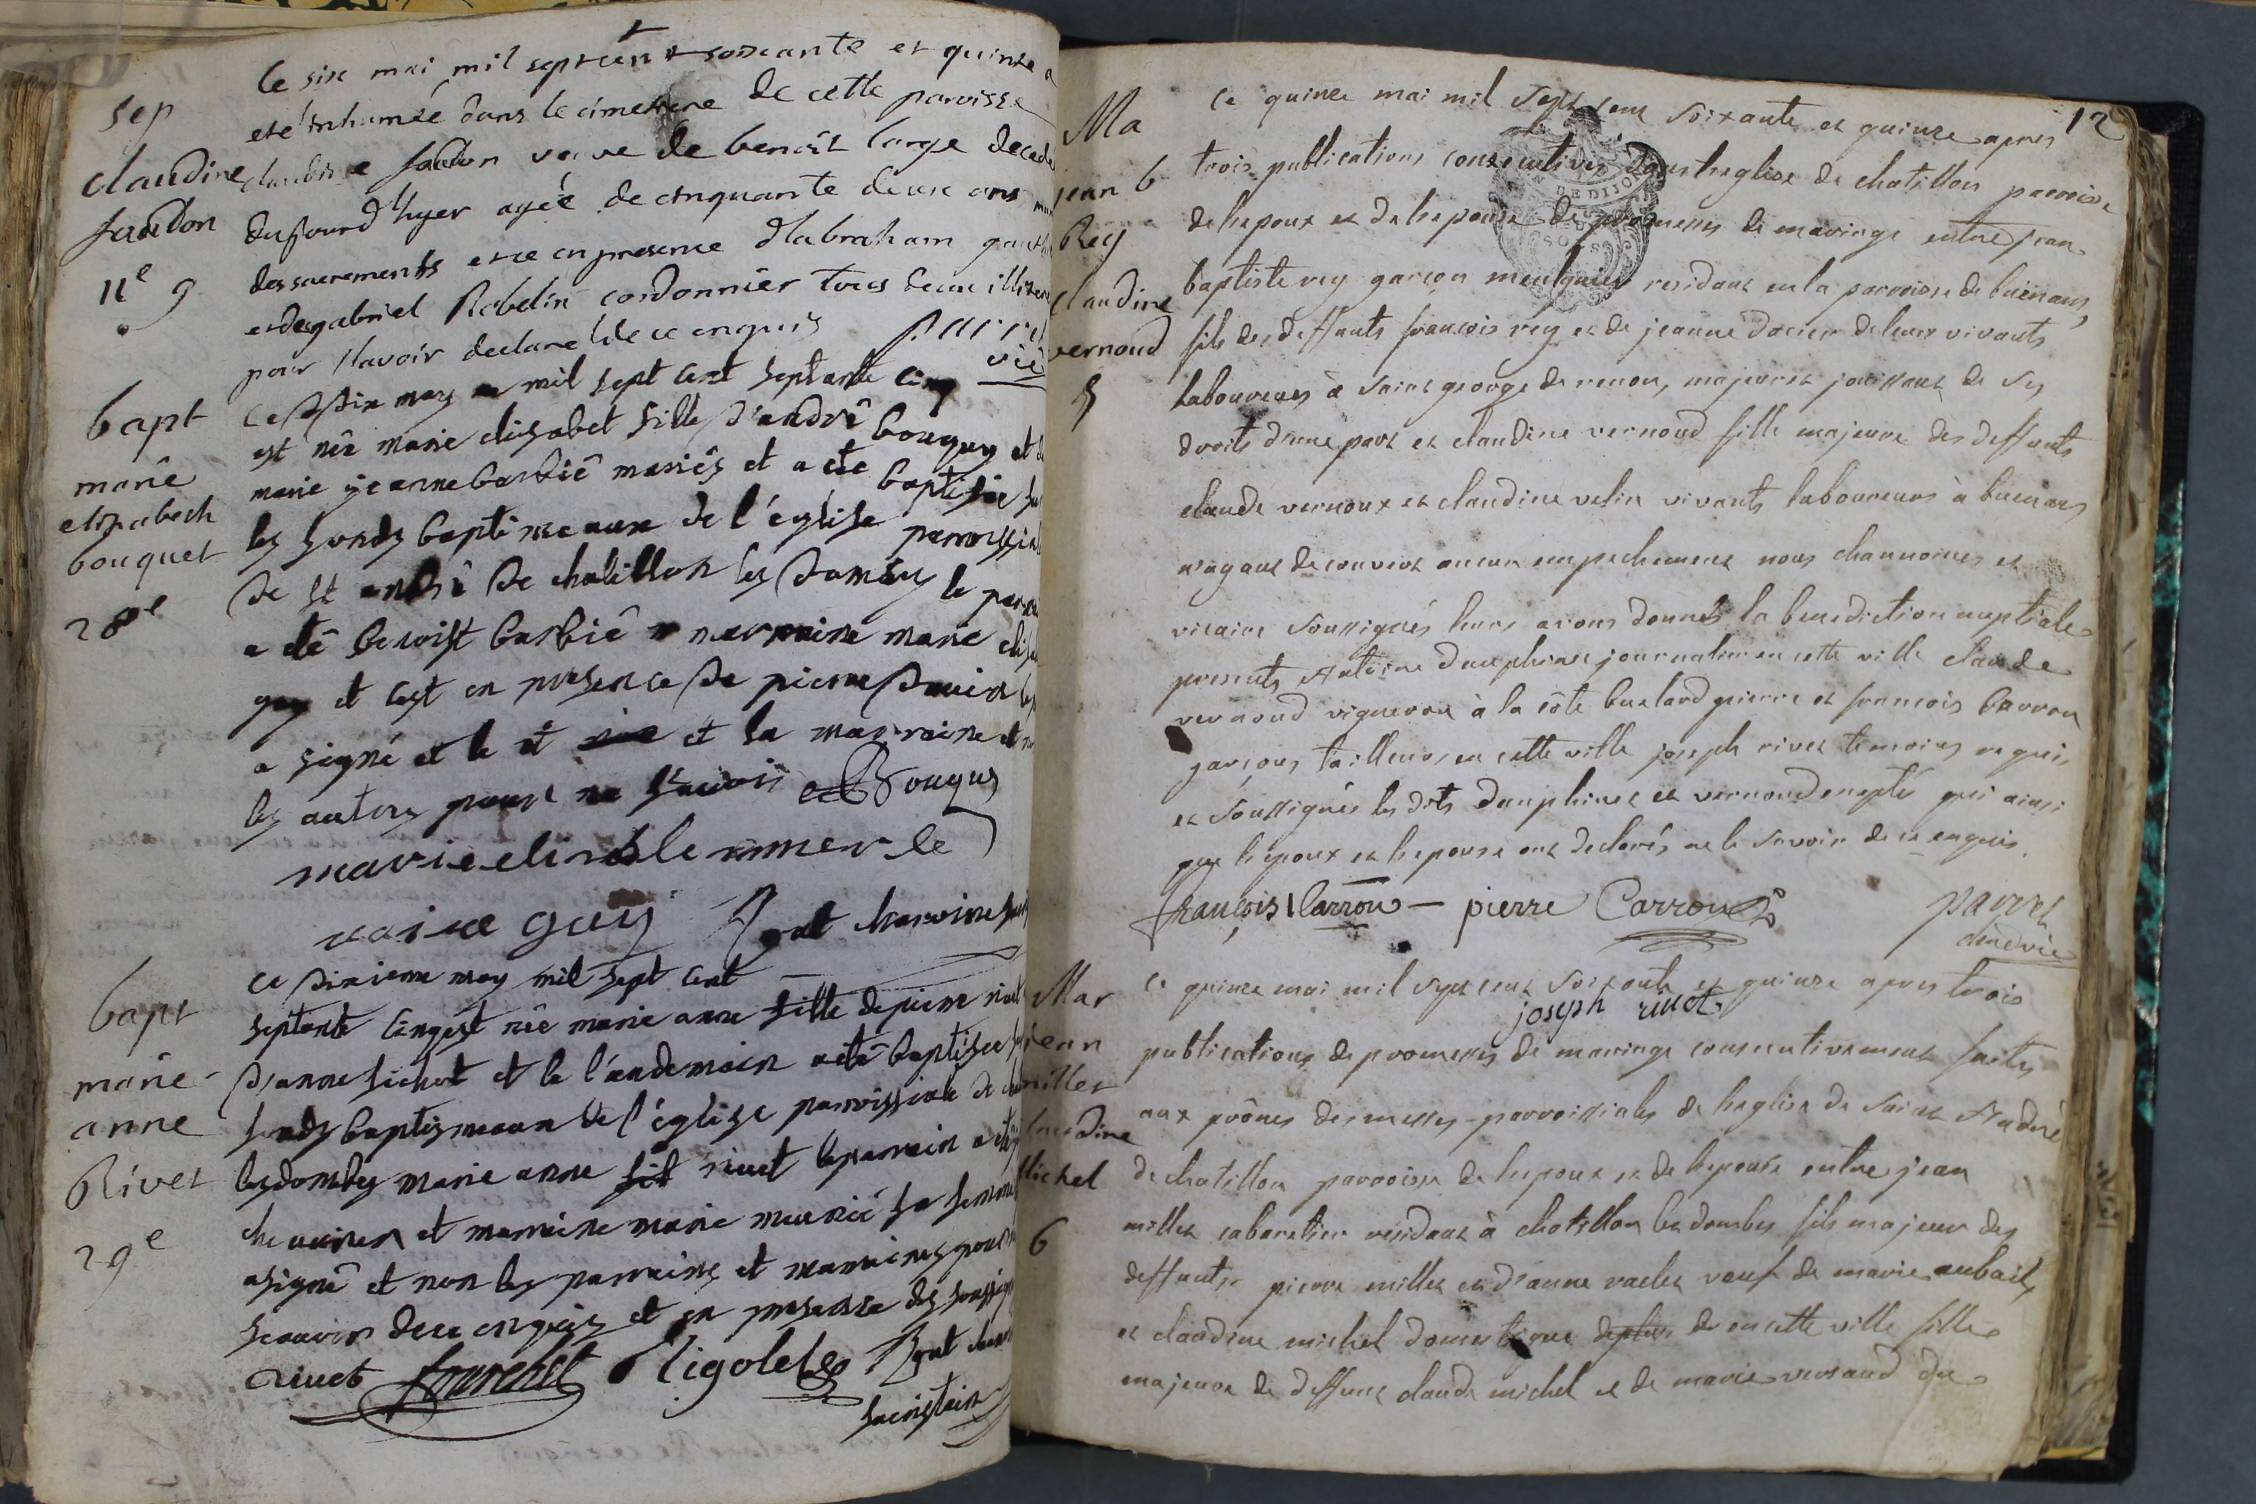 le six mai mil sept cent soixante et quinze a
sep
eté inhumée dans le cimetiere de cette paroisse
claudine
claudine foudon veuve de benoît large decedee
foudon
du jour d'hyer agée de cinquante deux ans
11e 9
des sacrements et ce en presence d'abraham
et de gabriel Robelin cordonnier tous deux
pour scavoir declaré de ce enquis
vic
bapt
marie
elisabeth
bouquet
28e
ce dix may mil sept cent septante cinq
est née marie elisabet fille d'andré bouquy et de
marie jeanne barbié mariés et a eté baptisée
les fonds baptismeaux de l'église parroissial
de St andré de chatillon les dombes le
a été benoist barbié marraine marie
guy et cest en presence de pierre
a signé et le et et la marraine et
les autres pour ne scavoir Bouquy
marie elis
guy chanoine
bapt
marie
anne
Rivet
29e
ce dixieme may mil sept cent
septante cinq est née marie anne fille de pierre rivet
d'anne sichet et le l'andemain a été baptisee
fonds baptismeaux de l'église parroissiale de
les dombes marie anne rivet le parrain a été
et marraine marie meunié sa femme
a signé et non les parrains et marraines pour
scavoir de ce enquis et en presence des
rivet Rigolet
sacristain
12
Ma
jean b
Rey
claudine
vernoud
5
ce quinze mai mil sept cent soixante et quinze apres
trois publications consecutives dans l'eglise de chatillon paroisse
de l'epoux et de l'epouse de promesses de mariage entre jean
baptiste rey garçon meulquier residant en la parroisse de buenans,
fils des deffunts françois rey et de jeanne docier de leurs vivants
laboureurs à saint george de renon, majeur et jouissant de ses
droits d'une part et claudine vernoud fille majeure des deffunts
claude vernoux et claudine velin vivants laboureurs à buenans
n'ayant decouvert aucun empechement nous channoines et
vicaire soussignés leurs avons donnés la benediction nuptiale
presents Antoine dauphinet journalier en cette ville claude
vernoud vigneron à la côte pierre et françois Carron
garçons tailleurs en cette ville joseph rivet temoins requis
et soussignés les dits dauphinet et vernoud excepté qui ainsi
que l'epoux et l'epouse ont declarés ne le savoir de ce enquis.
françois Carron — pierre Carron
parret
chne vic
joseph rivet
Mar
jean
millet
claudine
Michel
6
ce quinze mai mil sept cent soixante et quinze apres trois
publications de promesses de mariage consecutivement faites
aux prônes des messes parroissiales de l'eglise de saint André
de chatillon parroisse de l'epoux et de l'epouse entre jean
millet cabaretier residant à chatillon les dombes fils majeur des
deffunts pierre millet et d'anne veuf de marie aubail,
et claudine michel domestique de en cette ville fille
majeure de deffunt claude michel et de marie vernaud de